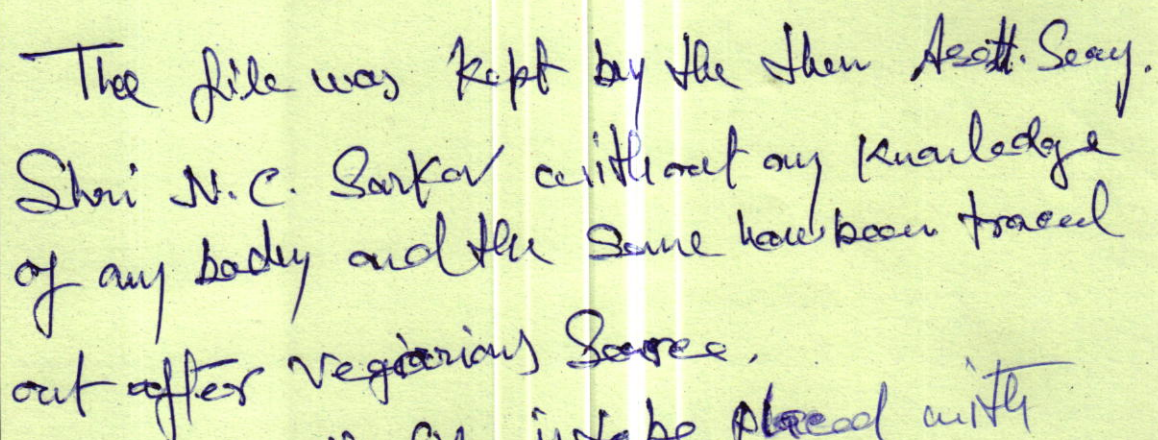 The file was kept by the then Asstt. Secy.
Shri N.C. Sarkar without any knowledge
of any body and the same have been traced
out after
is to be placed with